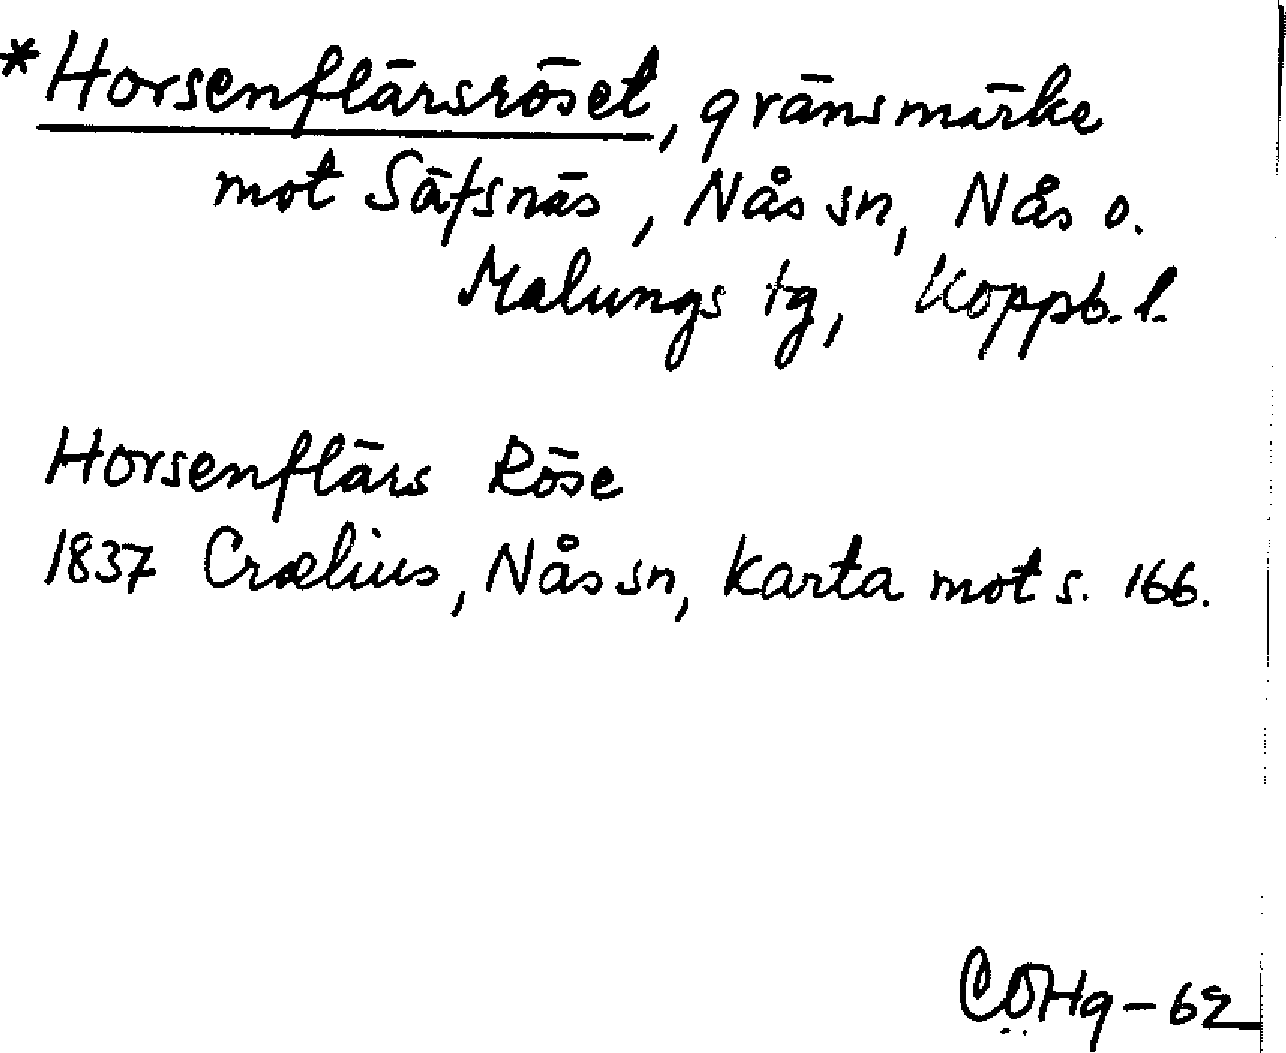 *Horsenflärsröset, gränsmärke
mot Säfsnäs, Nås sn, Nås o.
Malungs tg, Koppb. l.
Horsenflärs Röse
1837 Crælius, Nås sn, karta mot s. 166.
CÖHg-62